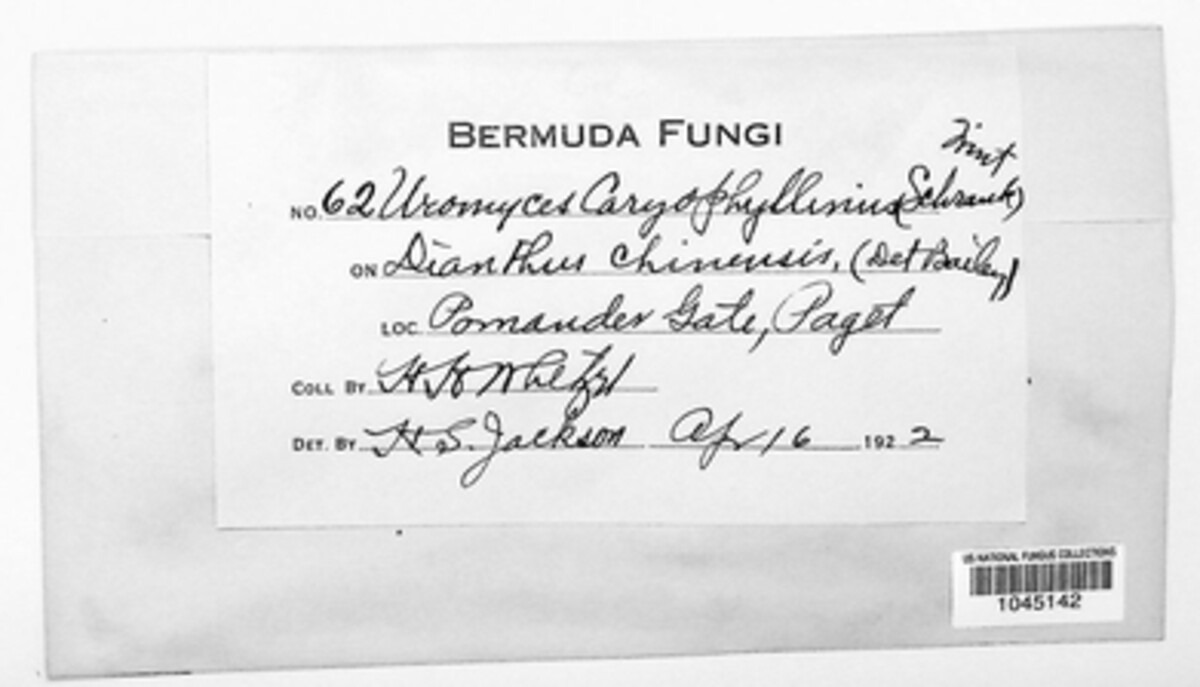 BERMUDA FUNGI
NO. 62 Uromyces Caryophyllinus (Schrank) Wint
ON Dianthus chinensis, (Det Bailey)
LOC Pomander Gate, Paget
COLL BY H H Whetzel
DET. BY H S. Jackson Apr 16 1922
US NATIONAL FUNGUS COLLECTIONS
1045142